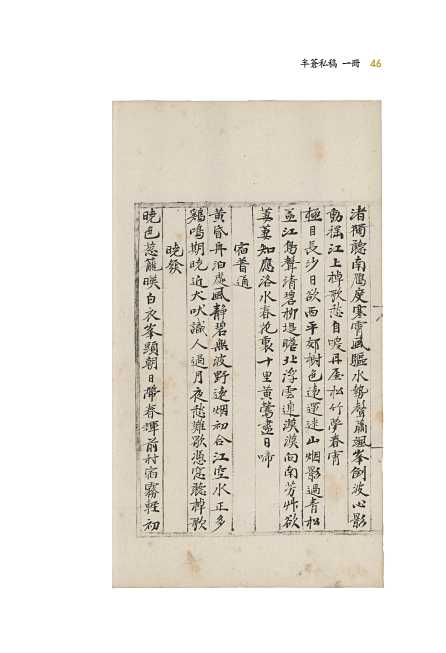 半蒼私稿 一冊 46
渚獨聽南鴈度寒宵風驅水勢聲蕭颯峯倒波心影
動搖江上棹歌愁自唳丹崖松竹夢春宵
極目長沙日欲西平郊樹色遠運迷山烟影過青松
並江鳥聲清碧柳堤曉北浮雲連漠漠向南芳艸欲
萋萋知應洛水春花裏十里黃鶯盡日啼
宿普通
黃昏舟泊處風靜碧無波野遠烟初合江空水正多
鷄鳴期曉近犬吠識人過月夜愁難歇憑窓聽棹歌
曉發
曉色葱籠暎白衣峯頭朝日帶春輝前村宿霧輕初